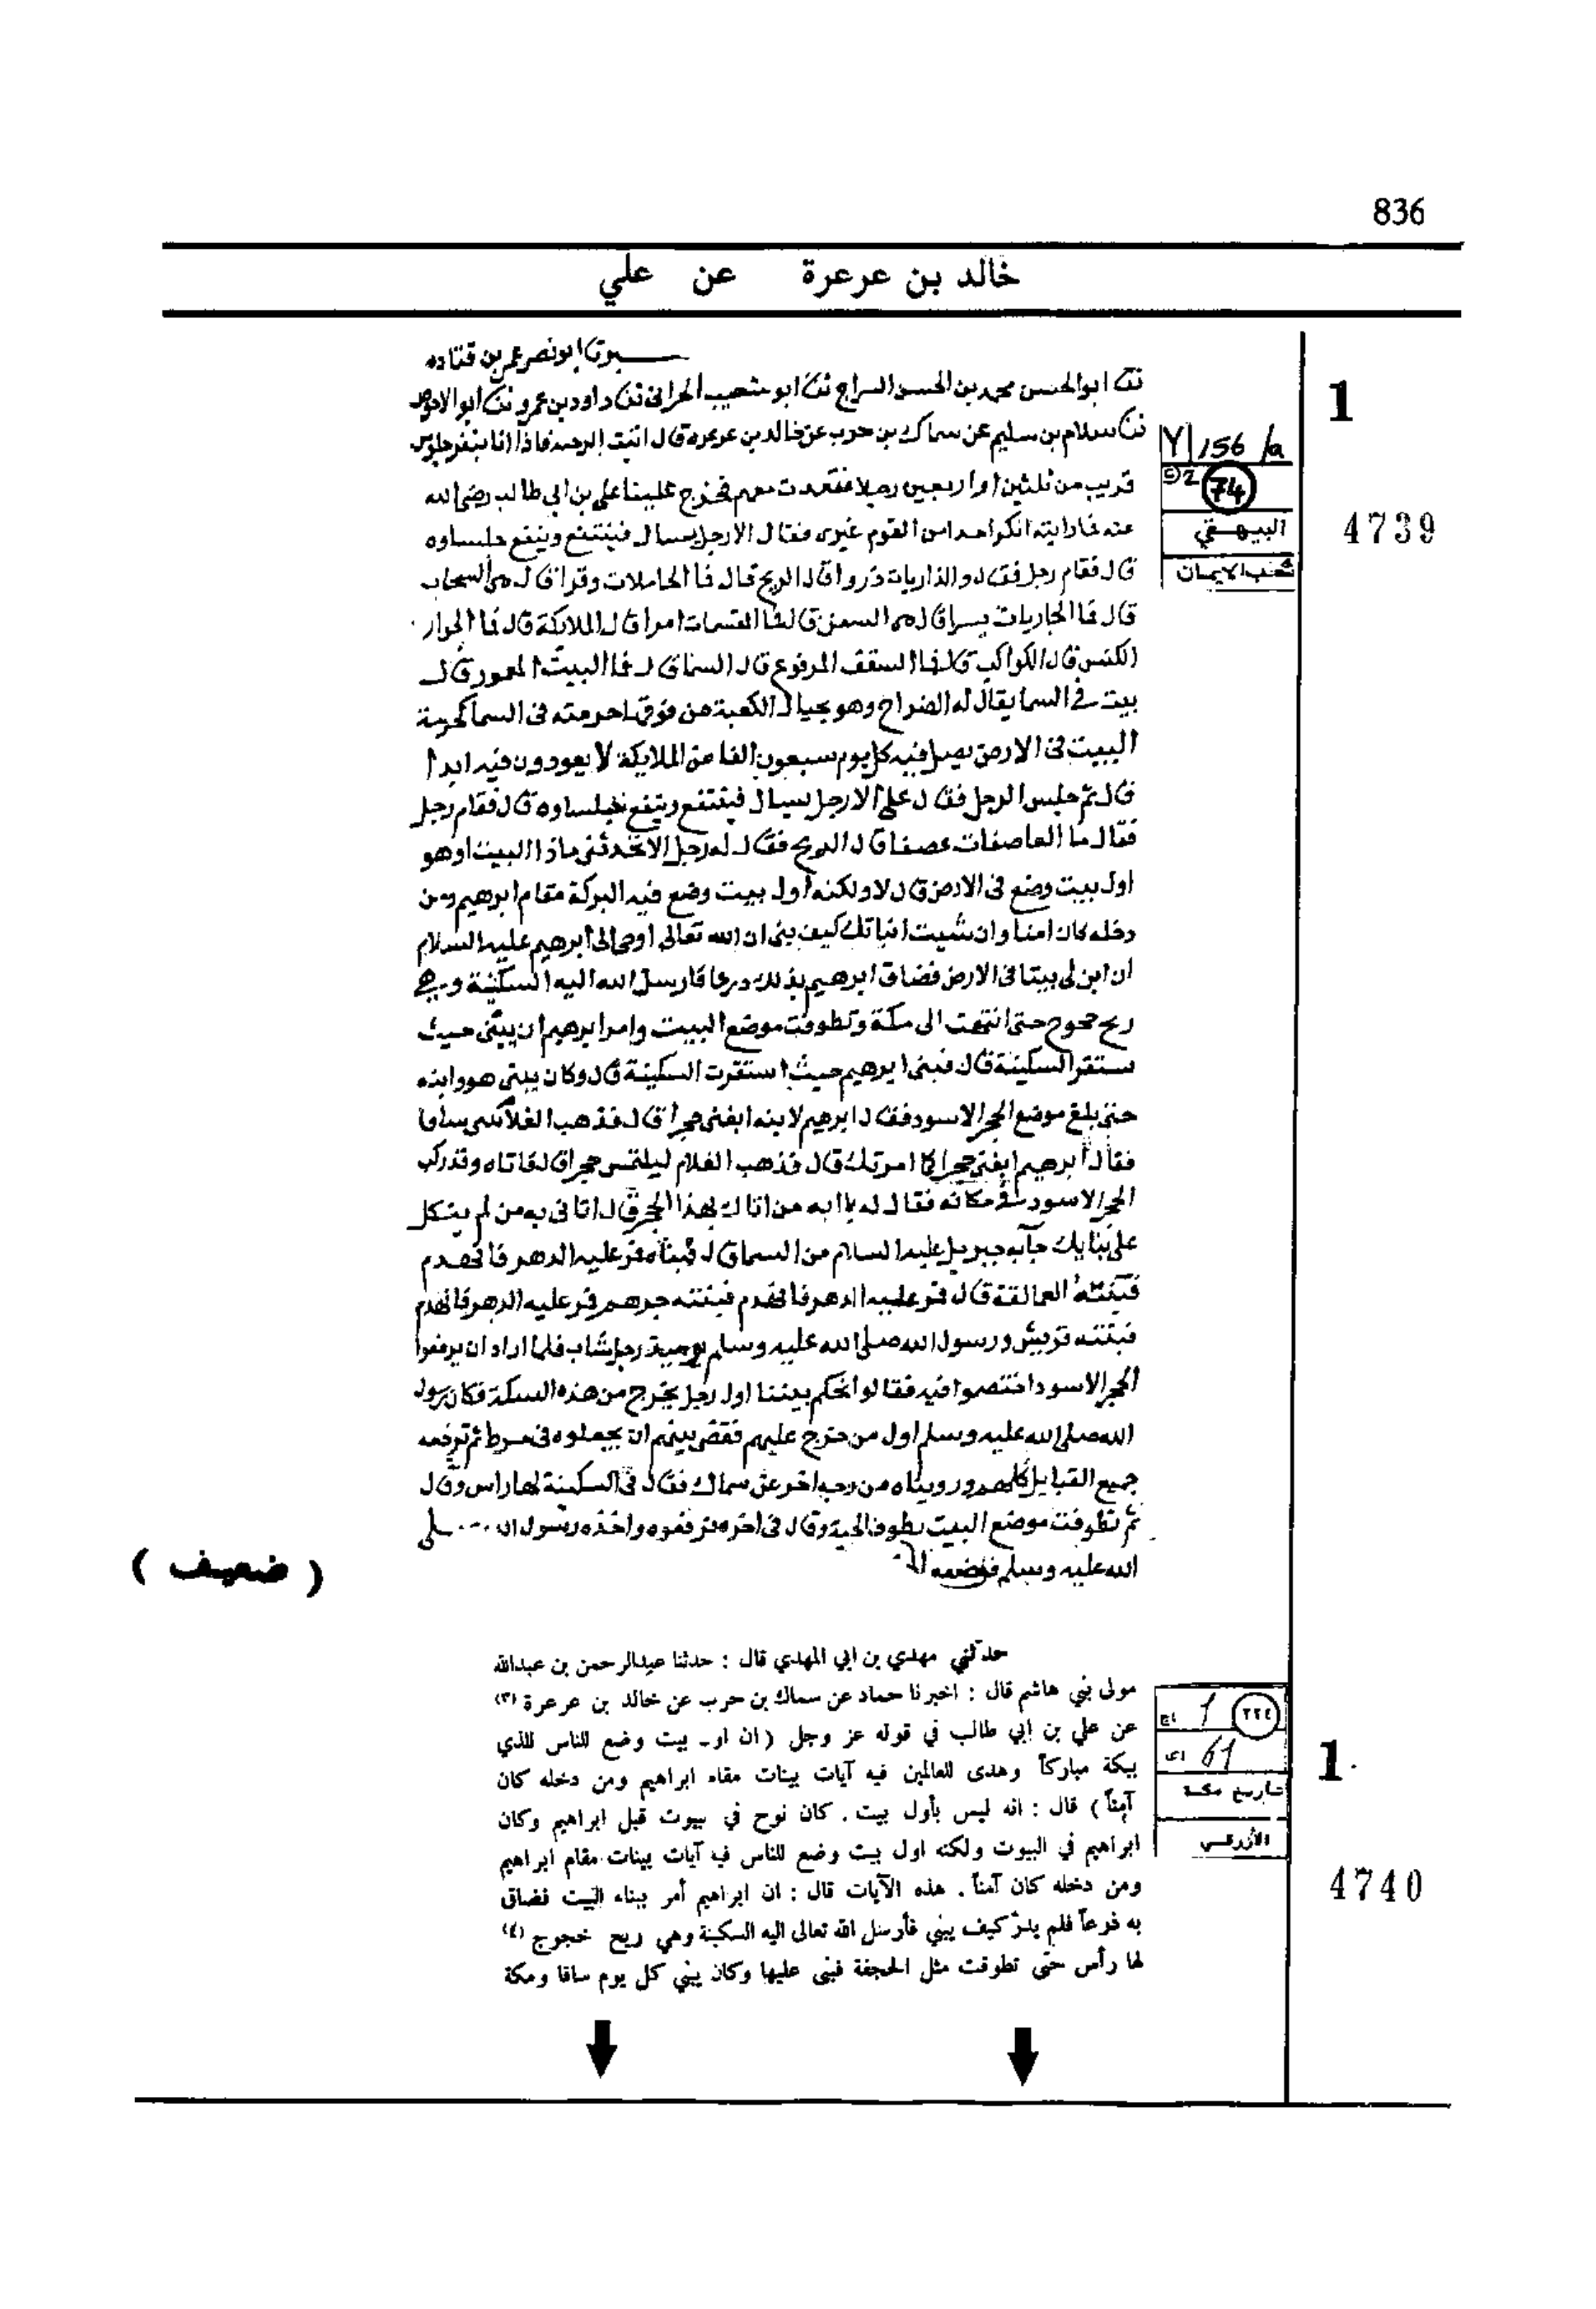 836
خالد بن عرعرة عن علي
ابو نصر عمر بن قتاده
ابو الحسن محمد بن الحسن السراج ثنا ابو شعيب الحراني ثنا داود بن عمرو ثنا ابو الاحوص
سلام بن سليم عن سماك بن حرب عن خالد بن عرعره قال اتيت الرحبه فاذا انا بنفر جلوس
قريب من ثلثين او اربعين رجلا فقعدت معهم فخرج علينا علي بن ابي طالب رضي الله
عنه فما رايته انكر احدا من القوم غيرى فقال الا رجل يسال فينتفع وينفع جلساوه
قال فقام رجل فقال والذاريات ذروا قال الريح قال فما الحاملات وقرا قال هى السحاب
قال فما الجاريات يسرا قال هى السفن قال فما المقسمات امرا قال الملائكة قال فما الجوار
الكنس قال الكواكب قال فما السقف المرفوع قال السما قال فما البيت المعمور قال
بيت في السما يقال له الضراح وهو بحيال الكعبة من فوقها حرمته فى السما كحرمة
البيت فى الارض يصلى فيه كل يوم سبعون الفا من الملايكة لا يعودون فيه ابدا
قال ثم جلس الرجل فقال على الا رجل يسال فينتفع وينفع جلساوه قال فقام رجل
فقال ما العاصفات عصفا قال الريح فقال له رجل الا تحدثنى ماذا البيت اهو
اول بيت وضع فى الارض قال لا ولكنه اول بيت وضع فيه البركة مقام ابرهيم ومن
دخله كان امنا وان شيت انباتك كيف بنى ان الله تعالى اوحى الى ابرهيم عليه السلام
ان ابن لى بيتا فى الارض فضاق ابرهيم بذلك ذرعا فارسل الله اليه السكينة وهي
ريح خجوج حتى انتهت الى مكة وتطوقت موضع البيت وامر ابرهيم ان يبنى حيث
تستقر السكينة قال فبنى ابرهيم حيث استقرت السكينة قال وكان يبنى هو وابنه
حتى بلغ موضع الحجر الاسود فقال ابرهيم لابنه ابغنى حجرا قال فذهب الغلام
فقال ابرهيم ابغنى حجرا كما امرتك قال فذهب الغلام ليلتمس حجرا قال فاتاه وقد ركب
الحجر الاسود في مكانه فقال له يا ابه من اتاك بهذا الحجر قال اتانى به من لم يتكل
على بنايك جآ به جبريل عليه السلام من السما قال فبناه فمر عليه الدهر فانهدم
فبنته العمالقة قال فمر عليه الدهر فانهدم فبنته جرهم فمر عليه الدهر فانهدم
فبنته قريش ورسول الله صلى الله عليه وسلم يوميذ رجل شاب فلما اراد ان يرفعوا
الحجر الاسود اختصموا فيه فقالوا نحكم بيننا اول رجل يخرج من هذه السكة فكان رسول
الله صلى الله عليه وسلم اول من خرج عليهم فقضى بينهم ان يجعلوه فى مرط ثم ترفعه
جميع القبايل كلهم ورويناه من وجه اخر عن سماك فقال فى السكينة لها راس وقال
ثم تطوقت موضع البيت تطوق الحية وقال فى اخره فرفعوه واخذه رسول الله صلى
الله عليه وسلم فوضعه
( ضعيف )
1
Y/156/a
74
البيهقي
شعب الايمان
4739
حدثني مهدي بن ابي المهدي قال : حدثنا عبدالرحمن بن عبدالله
مولى بني هاشم قال : اخبرنا حماد عن سماك بن حرب عن خالد بن عرعرة (٣)
عن علي بن ابي طالب في قوله عز وجل (ان اول بيت وضع للناس للذي
ببكة مباركاً وهدى للعالمين فيه آيات بينات مقام ابراهيم ومن دخله كان
آمناً ) قال : انه ليس بأول بيت . كان نوح في بيوت قبل ابراهيم وكان
ابراهيم في البيوت ولكنه اول بيت وضع للناس فيه آيات بينات مقام ابراهيم
ومن دخله كان آمناً . هذه الآيات قال : ان ابراهيم أمر ببناء البيت فضاق
به ذرعاً فلم يدر كيف يبني فأرسل الله تعالى اليه السكينة وهي ريح خجوج (٤)
لها رأس حتى تطوقت مثل الحجفة فبنى عليها وكان يبني كل يوم ساقا ومكة
1
٢٢٤
1
61
تاريخ مكة
الأزرقي
4740